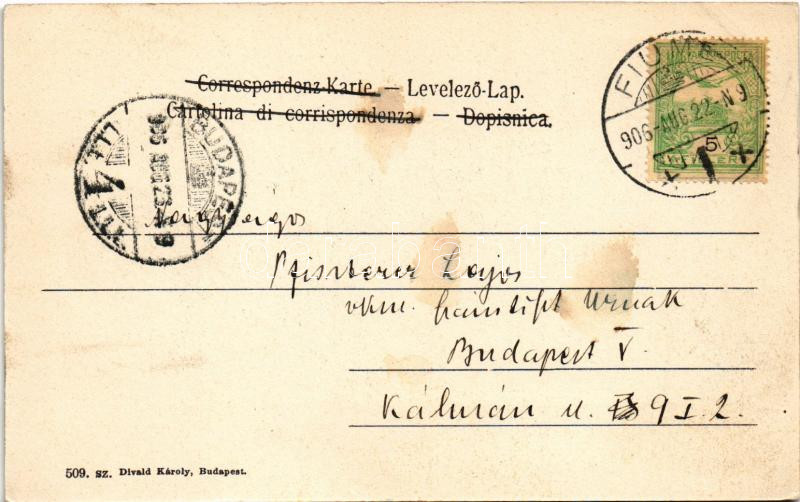 Correspondenz-Karte — Levelező-Lap.
Cartolina di corrispondenza — Dopisnica.
FIUME
906 AUG. 22. N 9
5
BUDAPEST
906 AUG 23
Nagyságos
Pfiszterer Lajos
vkm. Urnak
Budapest V.
Kálmán u. 9 I. 2.
509. sz. Divald Károly, Budapest.